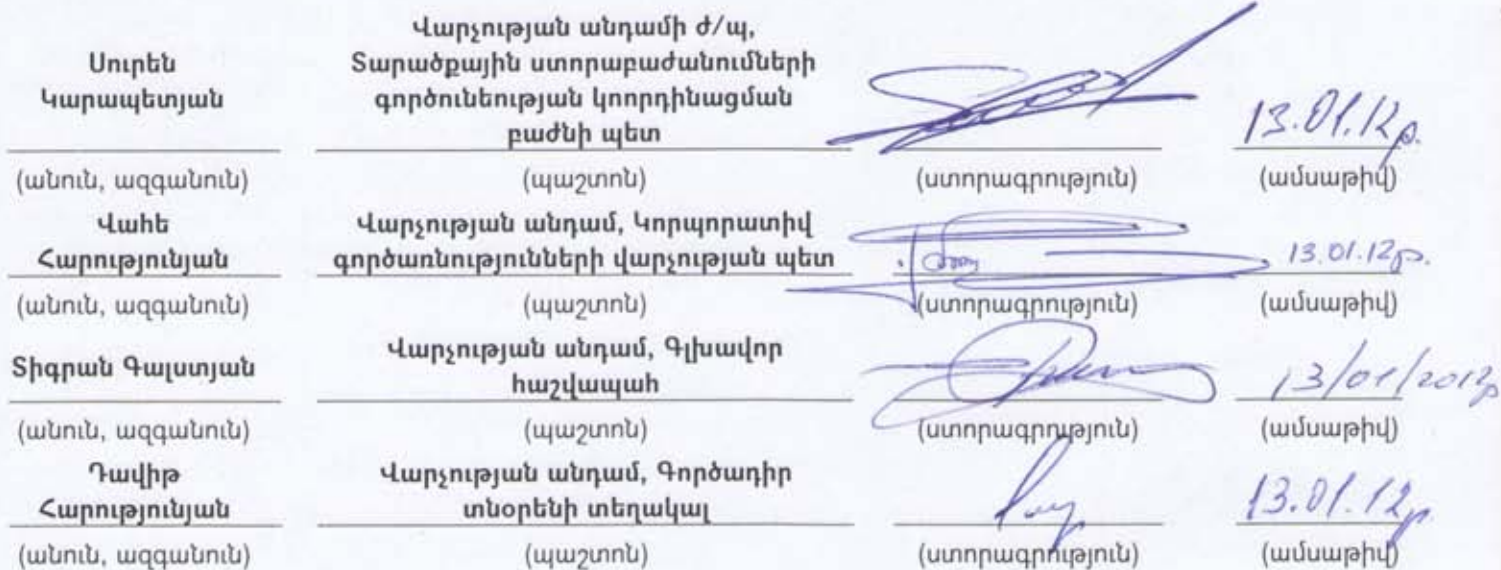 Սուրեն
Կարապետյան
Վարչության անդամի ժ/պ,
Տարածքային ստորաբաժանումների
գործունեության կոորդինացման
բաժնի պետ
13.01.12թ.
(անուն, ազգանուն) (պաշտոն) (ստորագրություն) (ամսաթիվ)
Վահե
Հարությունյան
Վարչության անդամ, Կորպորատիվ
գործառնությունների վարչության պետ
13.01.12թ.
(անուն, ազգանուն) (պաշտոն) (ստորագրություն) (ամսաթիվ)
Տիգրան Գալստյան
Վարչության անդամ, Գլխավոր
հաշվապահ
13/01/2012թ
(անուն, ազգանուն) (պաշտոն) (ստորագրություն) (ամսաթիվ)
Դավիթ
Հարությունյան
Վարչության անդամ, Գործադիր
տնօրենի տեղակալ
13.01.12թ.
(անուն, ազգանուն) (պաշտոն) (ստորագրություն) (ամսաթիվ)